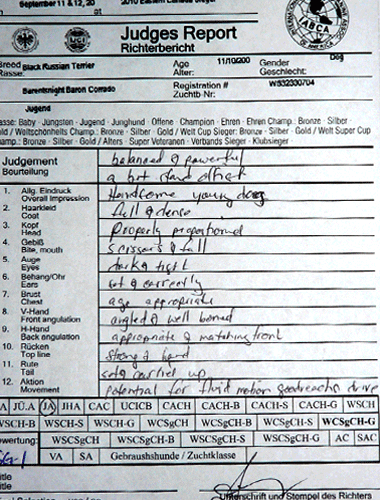 September 11 & 12, 20
2010 Eastern Canada Sieger
at
UCI
Judges Report
Richterbericht
ABCA
OF AMERICA
Breed
Rasse:
Black Russian Terrier
Age
Alter:
11/10/200
Gender
Geschlecht:
Dog
Barentsnight Baron Corrado
Registration #
Zuchtb-Nr:
WS32330704
Jugend
asse: Baby - Jüngsten - Jugend - Junghund - Offene - Champion - Ehren - Ehren Champ.: Bronze - Silber -
old / Weltschönheits Champ.: Bronze - Silber - Gold / Welt Cup Sieger: Bronze - Silber - Gold / Welt Super Cup
hamp.: Bronze - Silber - Gold / Alters - Super Veteranen - Verbands Sieger - Klubsieger
Judgement
Beurteilung
balanced & powerful
a bit stand offish
1. Allg. Eindruck
Overall Impression
Handsome young dog
2. Haarkleid
Coat
full & dense
3. Kopf
Head
Properly proportioned
4. Gebiß
Bite, mouth
scissors & full
5. Auge
Eyes
dark & tight
6. Behang/Ohr
Ears
set correctly
7. Brust
Chest
age appropriate
8. V-Hand
Front angulation
angled & well boned
9. H-Hand
Back angulation
appropriate & matching front
10. Rücken
Top line
strong & hard
11. Rute
Tail
set & carried up
12. Aktion
Movement
potential for fluid motion good reach & drive
A JÜ.A JA JHA CAC UCICB CACH CACH-B CACH-S CACH-G WSCH
WSCH-B WSCH-S WSCH-G WCSgCH WCSgCH-B WCSgCH-S WCSgCH-G
ewertung: WSCSgCH WSCSgCH-B WSCSgCH-S WSCSgCH-G AC SAC
SG-1 VA SA Gebrauchshunde / Zuchtklasse
title
title
Unterschrift und Stempel des Richters